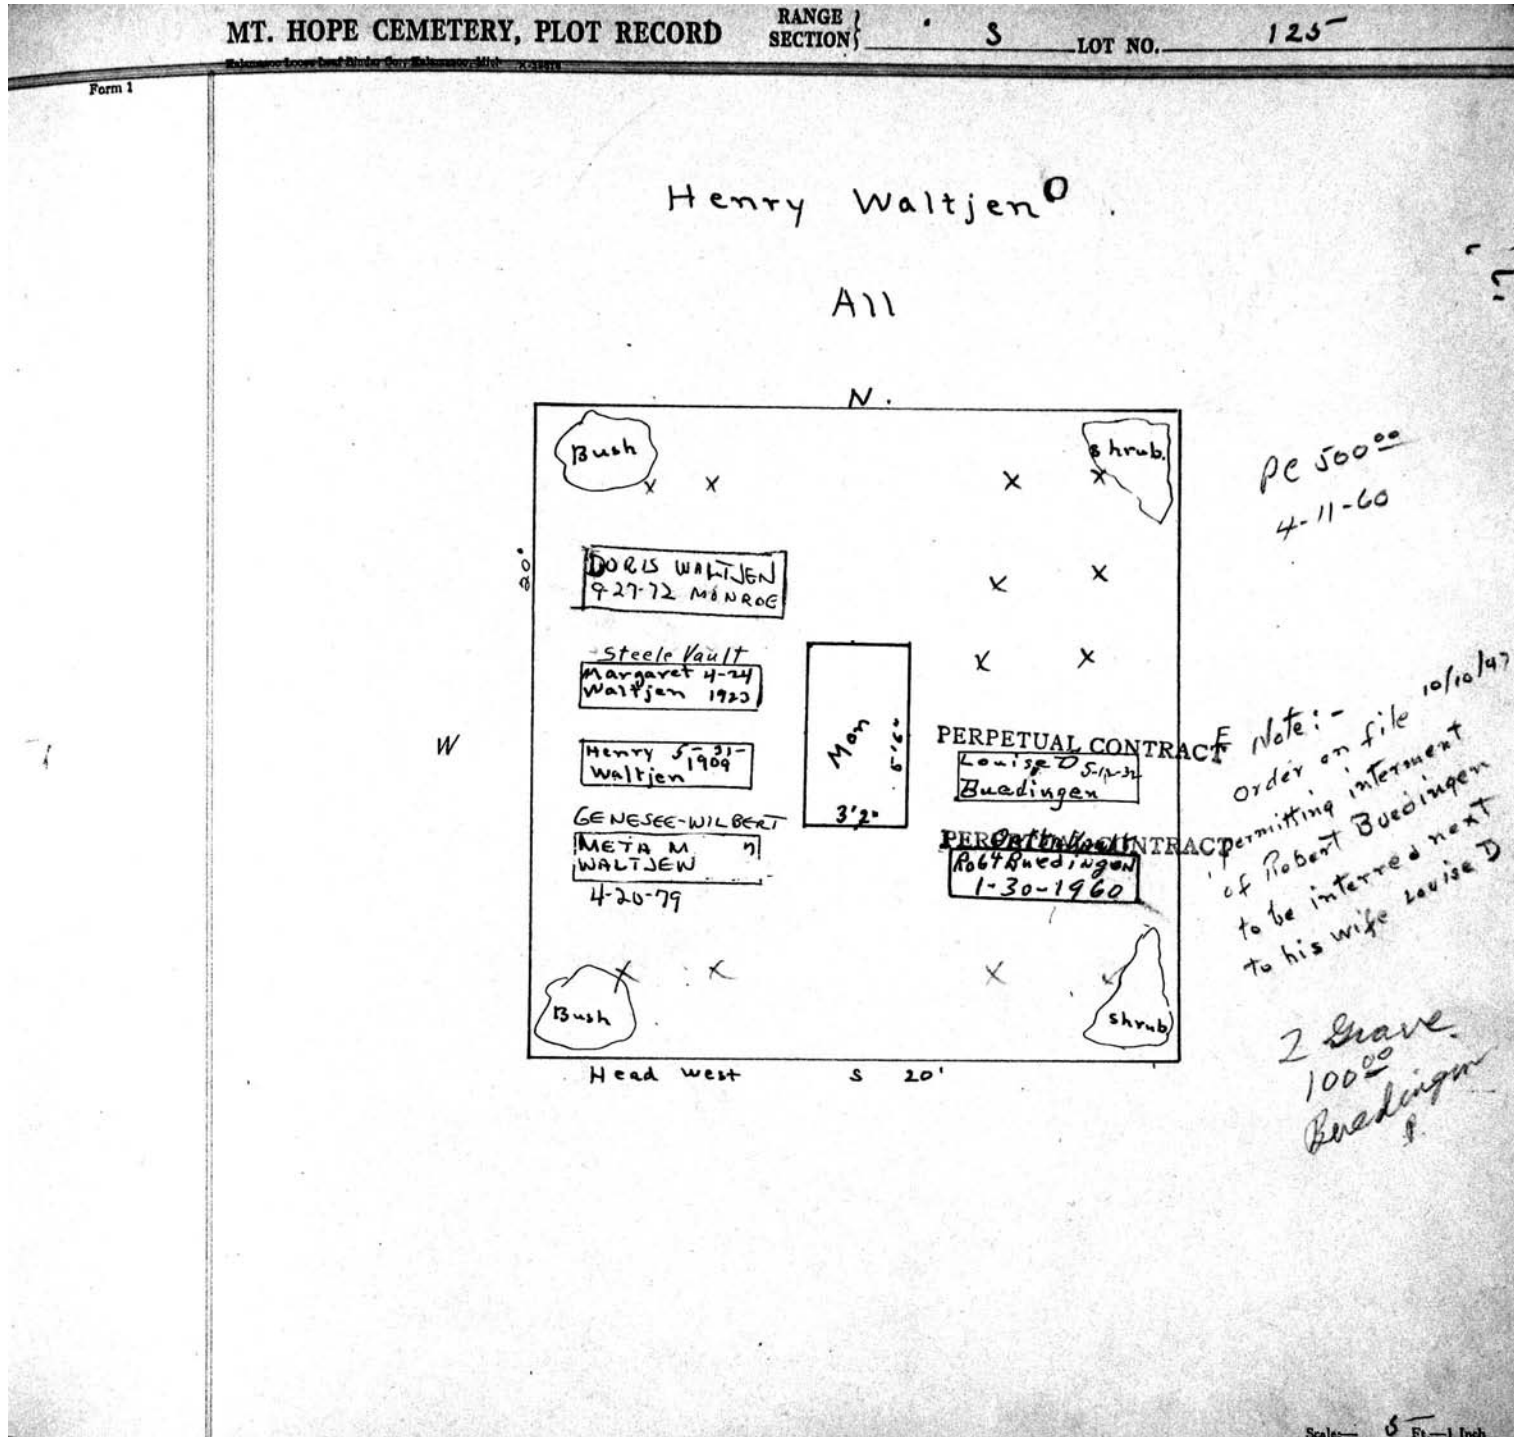 MT. HOPE CEMETERY, PLOT RECORD
RANGE
SECTION
S
LOT NO.
125
Kalamazoo Loose Leaf Binder Co., Kalamazoo, Mich
Form 1
Henry Waltjen O.
All
N.
Bush
Shrub.
x x x x
20'
DORIS WALTJEN
9-27-72 MONROE
x x
Steele Vault
Margaret 4-24
Waltjen 1923
x x
W
Henry 5-31-
Waltjen 1909
Mon
5'6"
3'2"
PERPETUAL CONTRACT
E
Louise D 5-12-32
Buedingen
GENESEE-WILBERT
META M
WALTJEN
4-20-79
PERPETUAL CONTRACT
Robt Buedingen
1-30-1960
x x x x
Bush
shrub
Head West S 20'
PC 500 00
4-11-60
Note:-
order on file 10/10/47
permitting interment
of Robert Buedingen
to be interred next
to his wife Louise D
2 Grave
100 00
Buedingen
P.
Scale— 5 Ft—1 Inch